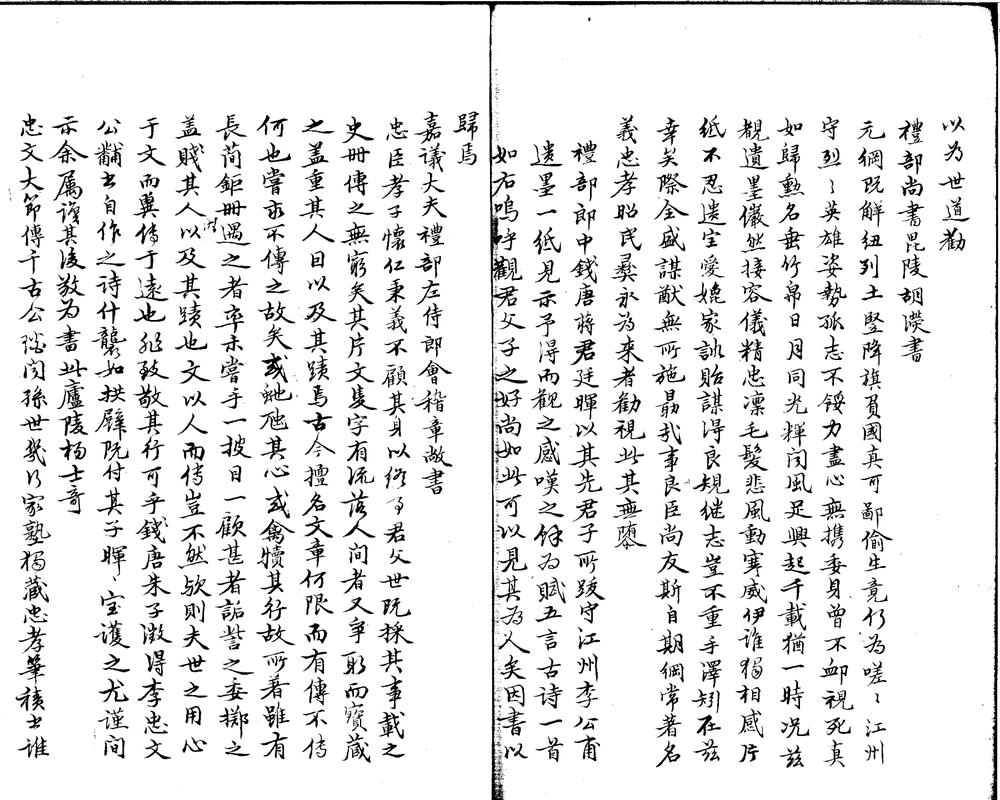 以為世道勸
禮部尚書毘陵胡濙書
元綱既解紐列土竪降旗負國真可鄙偷生竟何為嗟〻江州
守烈〻英雄姿勢孤志不餒力盡心無携委身曾不衂視死真
如歸勲名垂竹帛日月同光輝聞風足興起千載猶一時况兹
覩遺墨儼然接容儀精忠凛毛髮悲風動寒威伊誰獨相感片
紙不忍遺宝愛媲家訓貽謀得良規继志豈不重手澤矧在兹
幸矣際全盛謀猷無所施勗哉事良臣尚友斯自期綱常著名
義忠孝昭民彞永為来者勸視此其無隳
禮部郎中錢唐蔣君廷暉以其先君子所跋守江州李公甫
遺墨一紙見示予得而觀之感嘆之餘為賦五言古诗一首
如右嗚呼觀君父子之好尚如此可以見其為人矣因書以
歸焉
嘉議大夫禮部左侍郎會稽章敞書
忠臣孝子懷仁秉義不顧其身以终了君父世既採其事載之
史冊傳之無窮矣其片文隻字有流落人间者又争取而寶藏
之盖重其人目以及其蹟焉古今擅名文章何限而有傳不传
何也嘗求不傳之故矣或虺虺其心或禽犢其行故所著雖有
長茼鉅冊遇之者率未嘗手一披目一顧甚者詬詈之委擲之
盖賤其人以及其蹟也文以人而傳豈不然欤則夫世之用心
于文而冀傳于遠也非致敬其行可乎錢唐朱子澂得李忠文
公黼書自作之诗什襲如拱壁既付其子暉〻宝護之尤謹间
示余属識其後敬为書此廬陵杨士奇
忠文大節傳千古公後闻孫世幾家塾獨藏忠孝筆積書誰